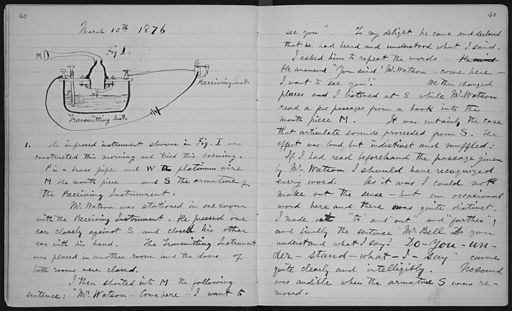 40
March 10th 1876
Fig. 1.
M
S
Receiving Inst.
P
W
Transmitting Inst.
1. The improved instrument shown in Fig. 1 was
constructed this morning and tried this evening.
P is a brass pipe and W the platinum wire
M the mouth piece and S the armature of
the Receiving Instrument.
Mr. Watson was stationed in one room
with the Receiving Instrument. He pressed one
ear closely against S and closed his other
ear with his hand. The Transmitting Instrument
was placed in another room and the doors of
both rooms were closed.
I then shouted into M the following
sentence: "Mr. Watson - Come here - I want to
41
see you". To my delight he came and declared
that he had heard and understood what I said.
I asked him to repeat the words.
He answered "You said 'Mr. Watson - come here -
I want to see you'." We then changed
places and I listened at S while Mr. Watson
read a few passages from a book into the
mouth piece M. It was certainly the case
that articulate sounds proceeded from S. The
effect was loud but indistinct and muffled.
If I had read beforehand the passage given
by Mr. Watson I should have recognized
every word. As it was I could not
make out the sense - but an occasional
word here and there was quite distinct.
I made out "to" and "out" and "further";
and finally the sentence "Mr. Bell do you
understand what I say? Do-you-un-
der-stand-what-I-say" came
quite clearly and intelligibly. No sound
was audible when the armature S was re-
moved.